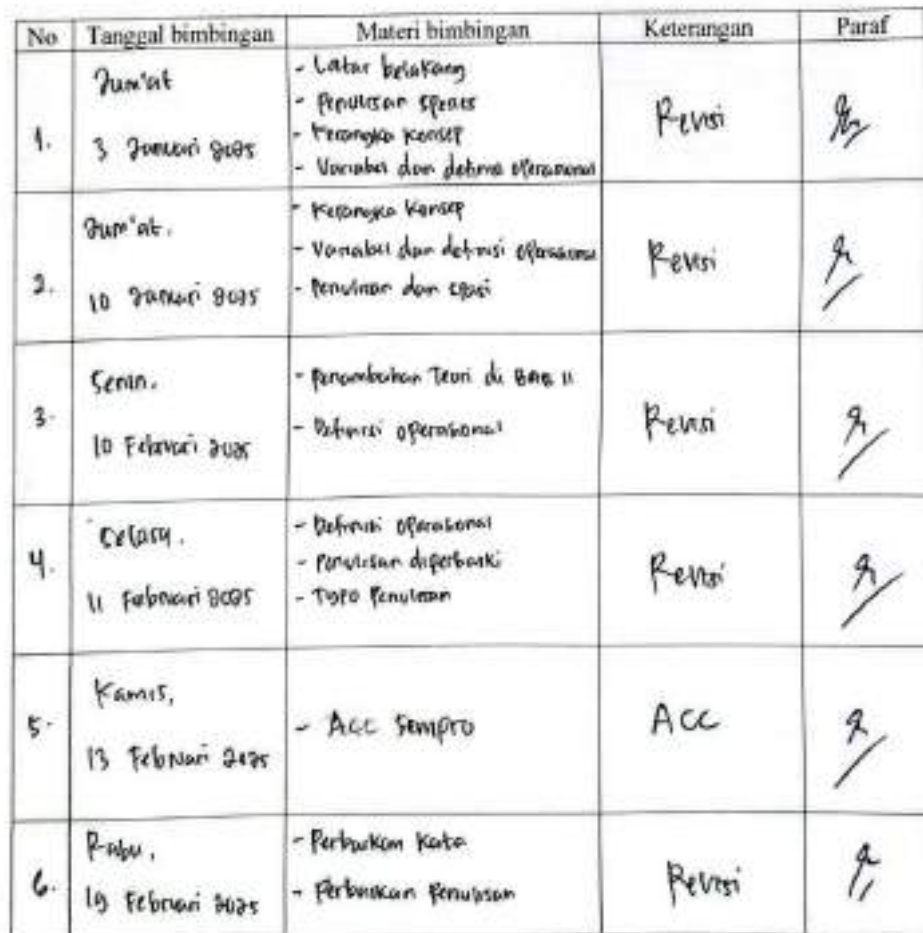 No Tanggal bimbingan Materi bimbingan Keterangan Paraf
1. Jum'at
3 Januari 2025
- Latar belakang
- Penulisan
- Kerangka konsep
- Variabel dan definisi operasional
Revisi
2. Jum'at,
10 Januari 2025
- Kerangka konsep
- Variabel dan definisi operasional
- Penulisan dan spasi
Revisi
3. Senin,
10 Februari 2025
- Penambahan Teori di BAB II
- Definisi operasional
Revisi
4. Selasa,
11 Februari 2025
- Definisi operasional
- Penulisan diperbaiki
- Typo Penulisan
Revisi
5. Kamis,
13 Februari 2025
- ACC Sempro
ACC
6. Rabu,
19 Februari 2025
- Perbaikan Kata
- Perbaikan Penulisan
Revisi